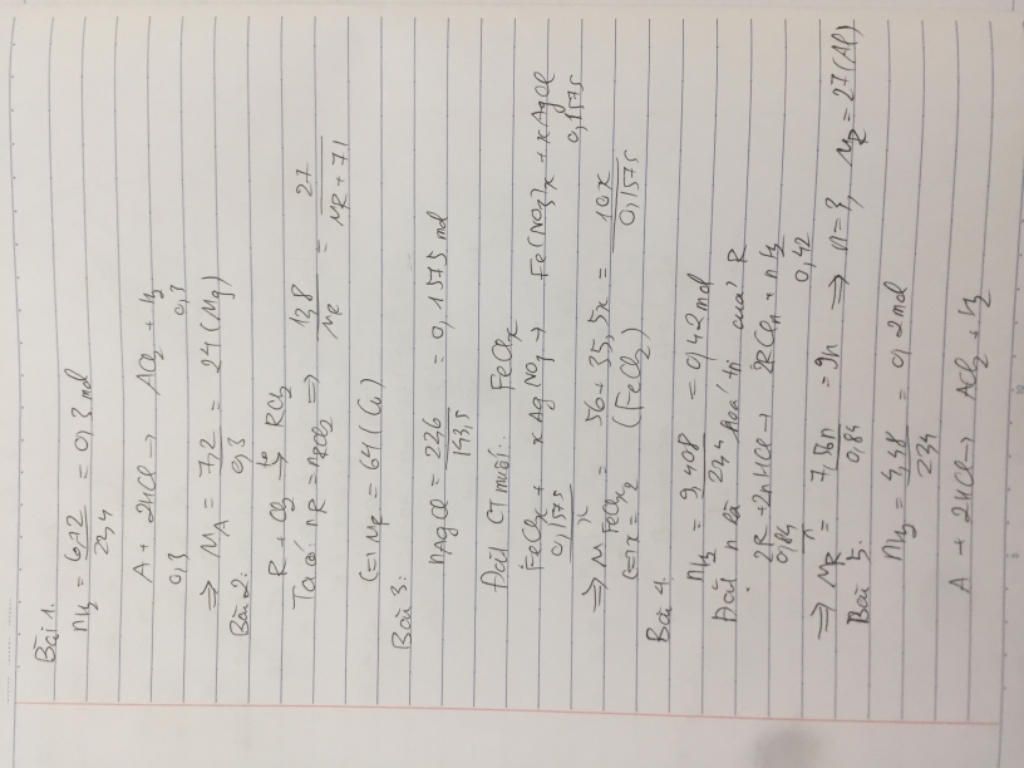 Bài 1.
nH2 = 6,72 / 22,4 = 0,3 mol
A + 2HCl → ACl2 + H2
0,3 0,3
⇒ MA = 7,2 / 0,3 = 24 (Mg)
Bài 2:
R + Cl2 →to RCl2
Ta có nR = nRCl2 ⇒ 12,8 / MR = 27 / MR + 71
(=) MR = 64 (Cu)
Bài 3:
nAgCl = 22,6 / 143,5 = 0,1575 mol
Đặt CT muối: FeClx
FeClx + xAgNO3 → Fe(NO3)x + xAgCl
0,1575 / x 0,1575
⇒ M FeClx = 56 + 35,5x = 10x / 0,1575
(=) x = 2 (FeCl2)
Bài 4.
nH2 = 9,408 / 22,4 = 0,42 mol
Đặt n là hoá trị của R
2R + 2nHCl → 2RCln + nH2
0,84 / n 0,42
⇒ MR = 7,56n / 0,84 = 9n ⇒ n = 3, MR = 27 (Al)
Bài 5.
nH2 = 4,48 / 22,4 = 0,2 mol
A + 2HCl → ACl2 + H2